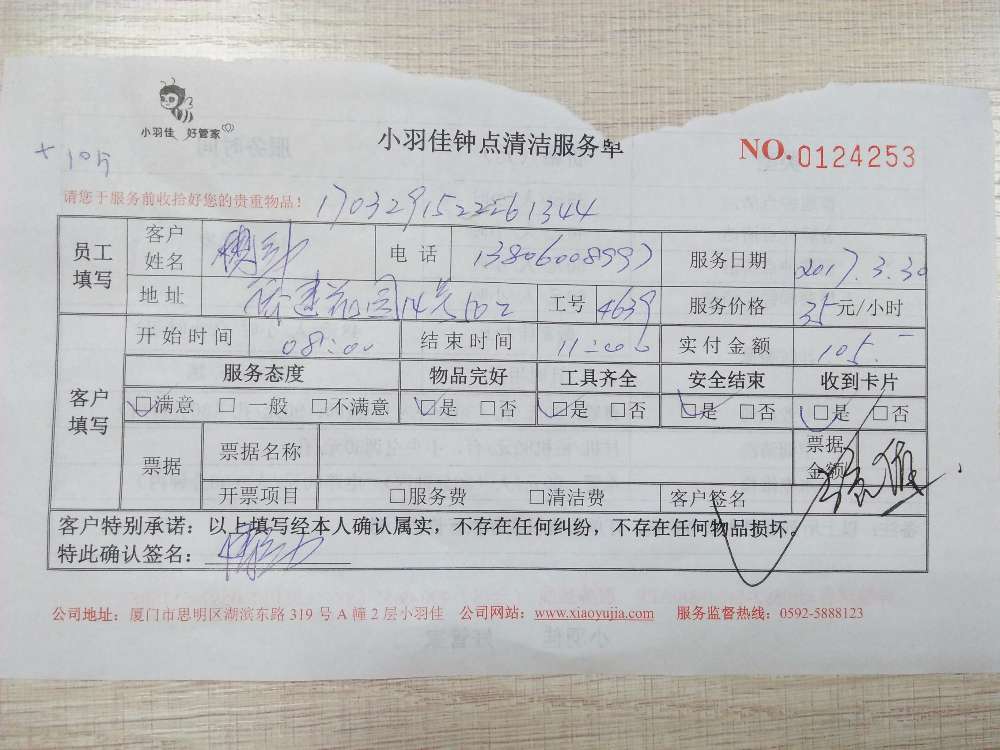 小羽佳 好管家
小羽佳钟点清洁服务单
NO.0124253
+105
请您于服务前收拾好您的贵重物品！
170329152226 1344
员工填写 客户姓名 电话 13806008997 服务日期 2017.3.30
地址 14号 工号 4639 服务价格 35元/小时
客户填写 开始时间 08:00 结束时间 11:00 实付金额 105.-
服务态度 物品完好 工具齐全 安全结束 收到卡片
☑满意 □一般 □不满意 ☑是 □否 ☑是 □否 ☑是 □否 ☑是 □否
票据 票据名称 票据金额
开票项目 □服务费 □清洁费 客户签名
客户特别承诺：以上填写经本人确认属实，不存在任何纠纷，不存在任何物品损坏。
特此确认签名：
公司地址：厦门市思明区湖滨东路 319 号 A 幢 2 层小羽佳 公司网站：www.xiaoyujia.com 服务监督热线：0592-5888123